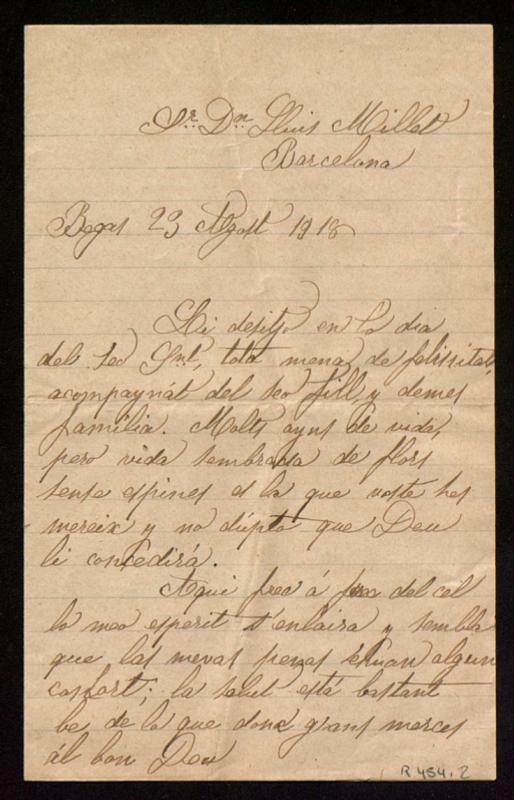 Sr. Dn. Lluis Millet
Barcelona
Begas 23 Agost 1918
Li desitjo en lo dia
del seo Snt, tota mena de felissitat,
acompaynát del seo fill, y demes
familia. Molts ayns de vida,
pero vida sembrada de flors
sense espines es la que voste hes
mereix y no dupto que Deu
li concedirá.
Aqui prop á prop del cel
lo meo esperit s'enlaira y sembla
que las mevas penas tenan algun
confort; la salut está bastant
be, de lo que donc grans merces
ál bon Deu
R 454.2